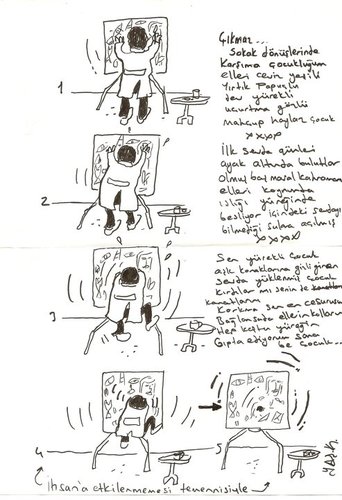 Çıkmaz...
Sokak dönüşlerinde
Karşıma çocukluğum
elleri ceviz yeşili
Yırtık Papuçlu
dev yürekli
uçurtma gözlü
Mahcup haylaz çocuk
xxxx
1
İlk sevda günleri
ayak altında bulutlar
Olmuş masal kahramanı
elleri koynunda
ıslığı yüreğinde
besliyor içindeki sevdayı
bilmediği sulara açılmış
xxxx
2
Sen yürekli çocuk
aşk konaklarına gizli giren
sevda yüklenmiş çocuk
Kırdılar mı senin de
kanatlarını
Korkma sen en cesursun
Bağlansada ellerin kolların
Her yüreğin
Gıpta ediyorum sana
be çocuk...
3
4
5
İhsan'a etkilenmemesi temennisiyle...